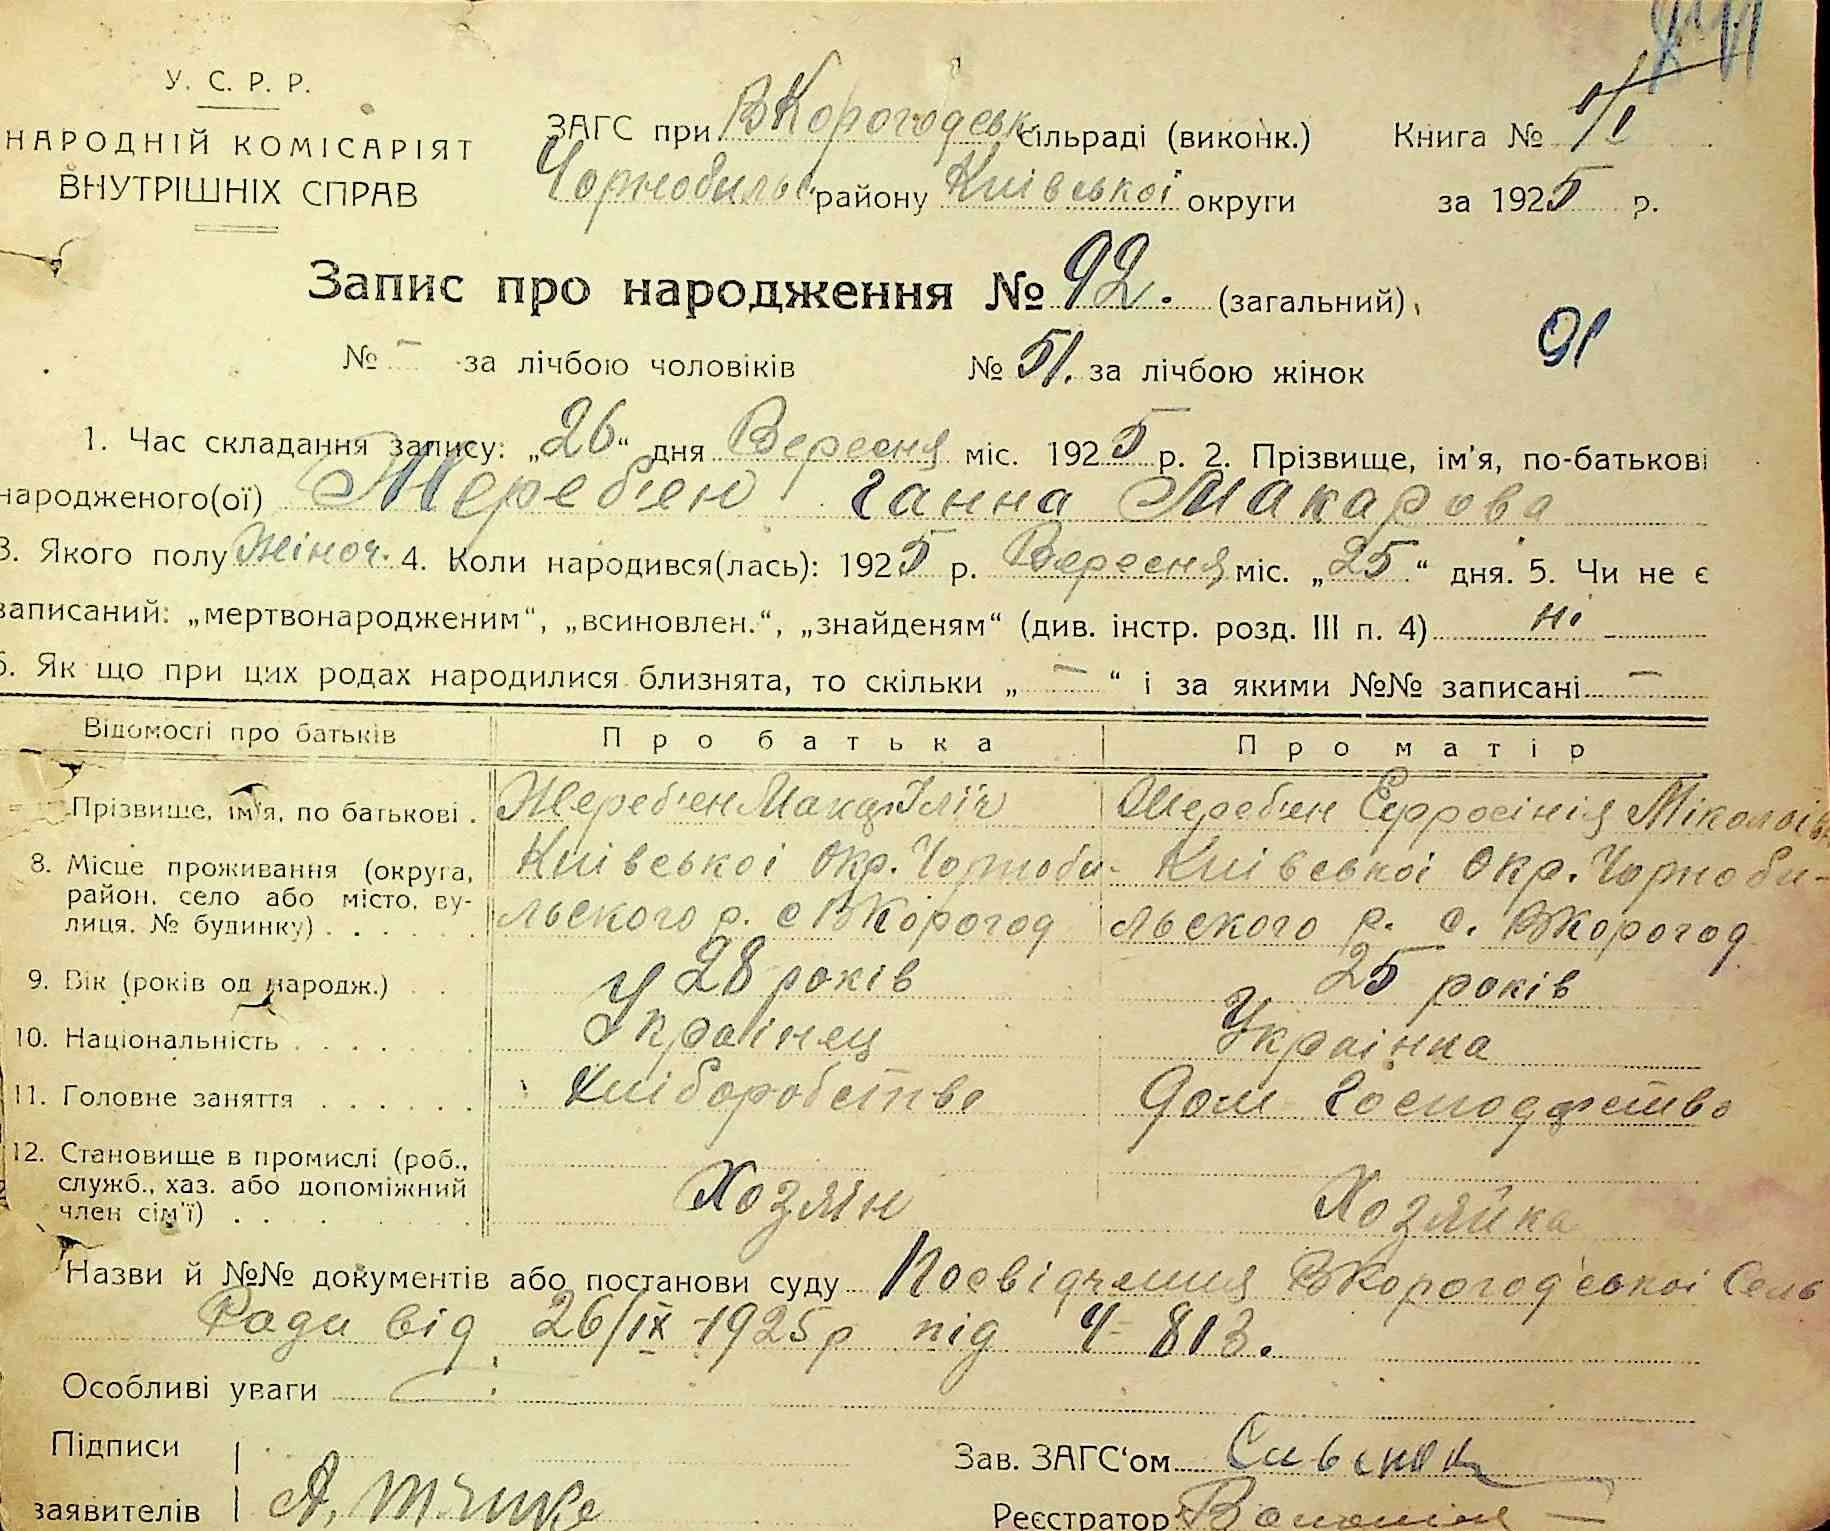 У. С. Р. Р.
НАРОДНІЙ КОМІСАРІЯТ
ВНУТРІШНІХ СПРАВ
ЗАГС при ВКорогодськ сільраді (виконк.) Книга №
Чорнобильс району Київської округи за 1925 р.
Запис про народження № 92. (загальний)
91
№ – за лічбою чоловіків № 51. за лічбою жінок
1. Час складання запису: „26“ дня Вересня міс. 1925 р. 2. Прізвище, ім'я, по-батькові
народженого(ої) Жереб'єн Ганна Макарова
3. Якого полу Жіноч. 4. Коли народився(лась): 1925 р. Вересня міс. „25“ дня. 5. Чи не є
записаний: „мертвонародженим“, „всиновлен.“, „знайденям“ (див. інстр. розд. III п. 4) ні
6. Як що при цих родах народилися близнята, то скільки „ – “ і за якими №№ записані –
Відомості про батьків Про батька Про матір
Прізвище, ім'я, по батькові . Жереб'єн Макар Ілліч Жереб'єн Єфросінія
8. Місце проживання (округа, Київської Окр. Чорноби- Київської Окр. Чорноби-
район, село або місто, ву- льского р. с ВКорогод льского р. с. ВКорогод
лиця, № будинку) . . . . . .
9. Вік (років од народж.) . . 28 років 25 років
10. Національність . . . . . . . Українец Українка
11. Головне заняття . . . . . . Хліборобство Дом Господарство
12. Становище в промислі (роб.,
служб., хаз. або допоміжний Хозяїн Хозяйка
член сім'ї) . . . . . . . .
Назви й №№ документів або постанови суду Посвідчення ВКорогодської Сель
Ради від 26/IX-1925р під Ч- 813.
Особливі уваги
Підписи
Зав. ЗАГС'ом
заявителів
Реєстратор